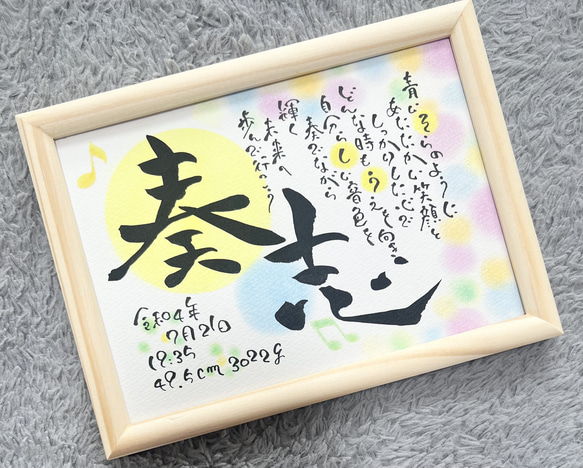 青いそらのように
あたたかい笑顔と
しっかりした心で
どんな時もうえを向き
自分らしい音色を
奏でながら
輝く
未来へ
歩んで行こう
奏志
令和04年
7月21日
19:35
49.5cm 3022g